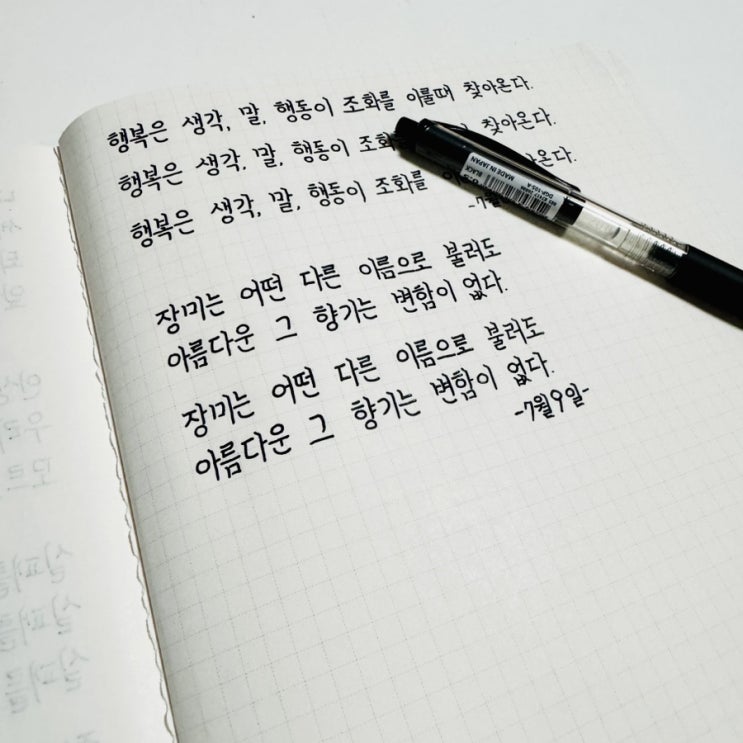 행복은 생각, 말, 행동이 조화를 이룰때 찾아온다.
행복은 생각, 말, 행동이 찾아온다.
행복은 생각, 말, 행동이 조화를
-7월
장미는 어떤 다른 이름으로 불러도
아름다운 그 향기는 변함이 없다.
장미는 어떤 다른 이름으로 불러도
아름다운 그 향기는 변함이 없다.
-7월9일-
BLACK
MADE IN JAPAN